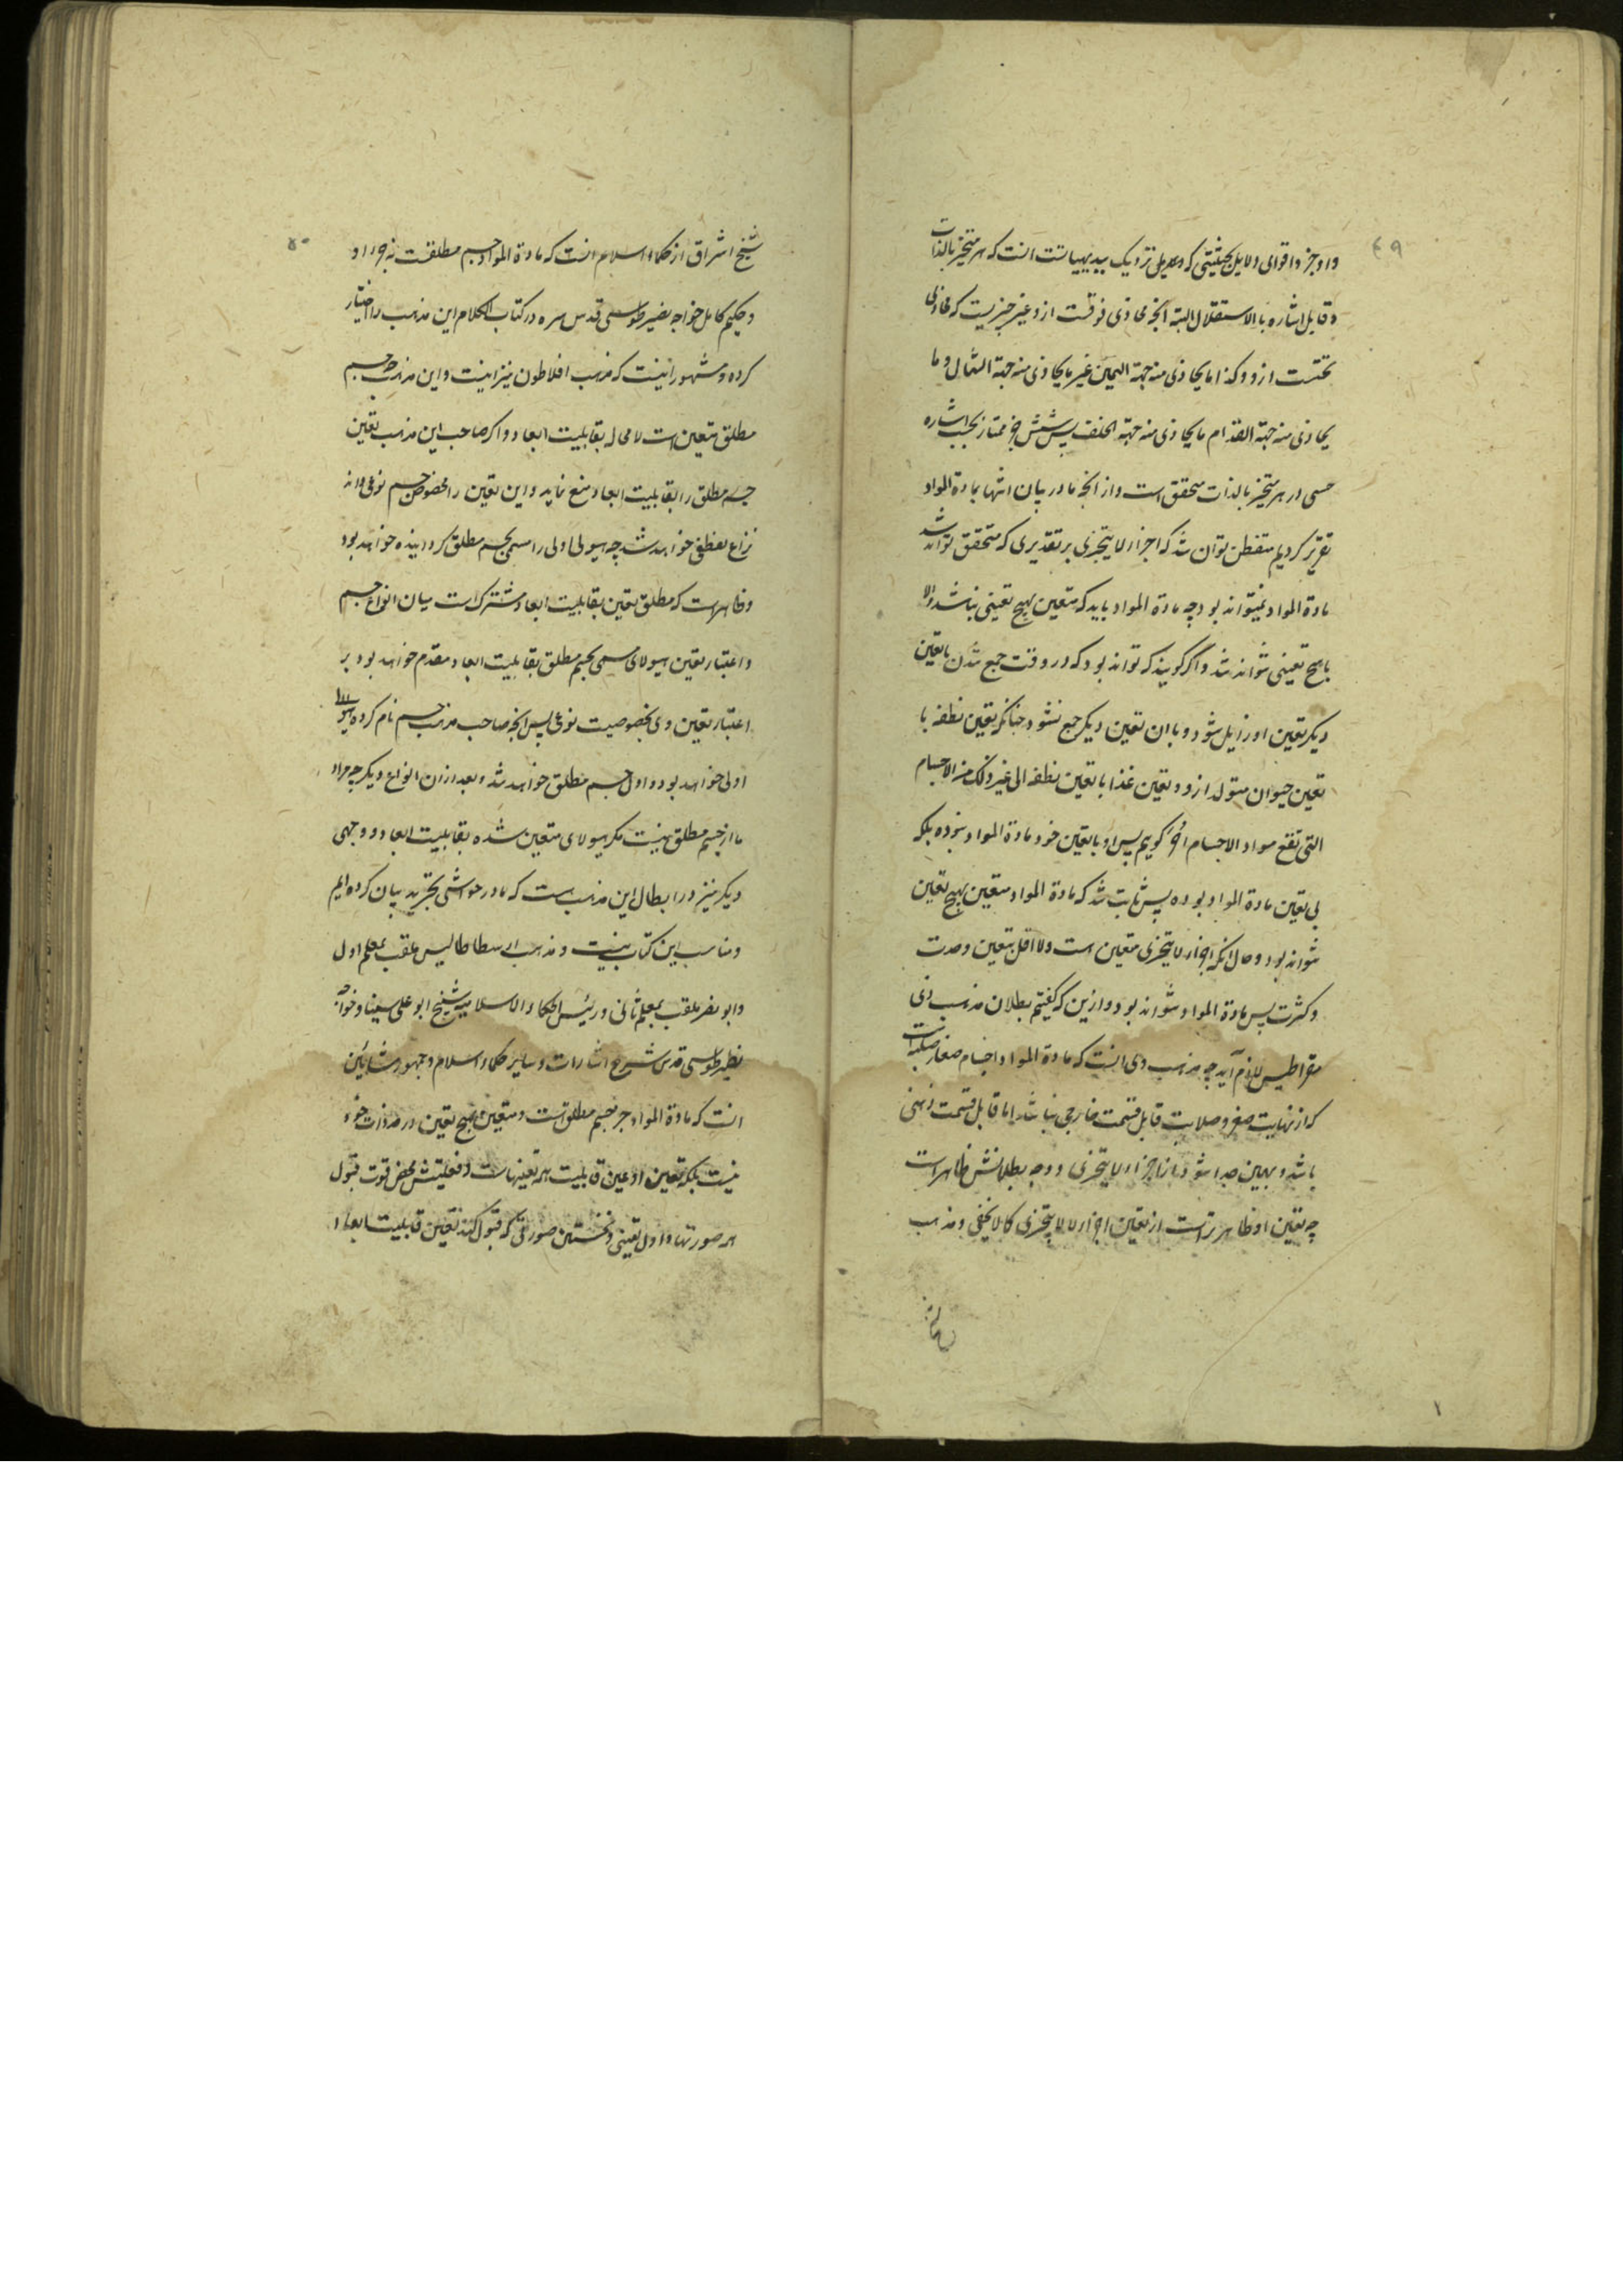 ۴۹
و اوجز و اقوای دلایل بحیثیتی که دلیل نزدیک ببدیهیاتست انست که هر متحیز بالذات
و قابل اشاره بالاستقلال البته آنچه محاذی فوقست ازو غیر چیزیست که محاذی
تحتست ازو و کذا ما یحاذی منه جهة الیمین غیر ما یحاذی منه جهة الشمال و ما
یحاذی منه جهة القدام ما یحاذی منه جهة الخلف پس شش جزء ممتاز بحسب اشاره
حسی در هر متحیز بالذات متحقق است و از آنچه ما در بیان انتها بمادة المواد
تقریر کردیم متفطن توان شد که اجزاء لا یتجزی بر تقدیری که متحقق تواند شد
مادة المواد نمیتواند بود چه مادة المواد باید که متعین بهیچ تعینی نباشد والا
با هیچ تعینی نتواند شد و اگر کویند که تواند بود که در وقت جمع شدن با تعین
دیکر تعین او زایل شود و با ان تعین دیکر جمع نشود چنانکه تعین نطفه با
تعین حیوان متولد ازو و تعین غذا با تعین نطفه الی غیر ذلک من الاجسام
التی تقع مواد الاجسام اخر کوییم پس او با تعین خود مادة المواد نبوده بلکه
بی تعین مادة المواد بوده پس ثابت شد که مادة المواد متعین بهیچ تعین
نتواند بود و حال آنکه اجزاء لا یتجزی متعین است و لا اقل بتعین وحدت
و کثرت پس مادة المواد نتواند بود و ازین که کفتیم بطلان مذهب ذی
مقراطیس لازم آید چه مذهب وی انست که مادة المواد اجسام صغار صلبه است
که از نهایت صغر و صلابت قابل قسمت خارجی نباشد اما قابل قسمت ذهنی
باشد و بهمین جدا شود از اجزاء لا یتجزی و وجه بطلانش ظاهر است
چه تعین او ظاهرتر است از تعین اجزاء لا یتجزی کما لا یخفی و مذهب
۵۰
شیخ اشراق از حکماء اسلام انست که مادة المواد جسم مطلقست نه جزء او
و حکیم کامل خواجه نصیر طوسی قدس سره در کتاب الکلام این مذهب را اختیار
کرده و مشهور اینست که مذهب افلاطون نیز اینست و این مذهب جسم
مطلق متعین است لا محاله بقابلیت ابعاد و اکر صاحب این مذهب تعین
جسم مطلق را بقابلیت ابعاد منع نماید و این تعین را مخصوص جسم نوعی داند
نزاع لفظی خواهد شد چه هیولی اولی را مسمی بجسم مطلق کردانیده خواهد بود
و ظاهر است که مطلق تعین بقابلیت ابعاد مشترک است میان انواع جسم
و اعتبار تعین هیولای مسمی بجسم مطلق بقابلیت ابعاد مقدم خواهد بود بر
اعتبار تعین وی بخصوصیت نوعی پس آنچه صاحب مذهب جسم نام کرده هیولای
اولی خواهد بود و اول جسم مطلق خواهد شد و بعد ازان انواع دیکر چه مراد
ما از جسم مطلق نیست مکر هیولای متعین شده بقابلیت ابعاد و وجهی
دیکر نیز در ابطال این مذهب هست که ما در حواشی تجرید بیان کرده ایم
و مناسب این کتاب نیست و مذهب ارسطاطالیس ملقب بمعلم اول
و ابو نصر ملقب بمعلم ثانی و رئیس الحکماء الاسلامیه شیخ ابو علی سینا و خواجه
نصیر طوسی قدس شرح اشارات و سایر حکماء اسلام و جمهور مشایین
انست که مادة المواد جزء جسم مطلق است و متعین بهیچ تعین در حد ذات خود
نیست بلکه تعین او عین قابلیت همه تعینهاست و فعلیتش محض قوت قبول
همه صورتها و اول تعینی و نخستین صورتی که قبول کند تعین قابلیت ابعاد